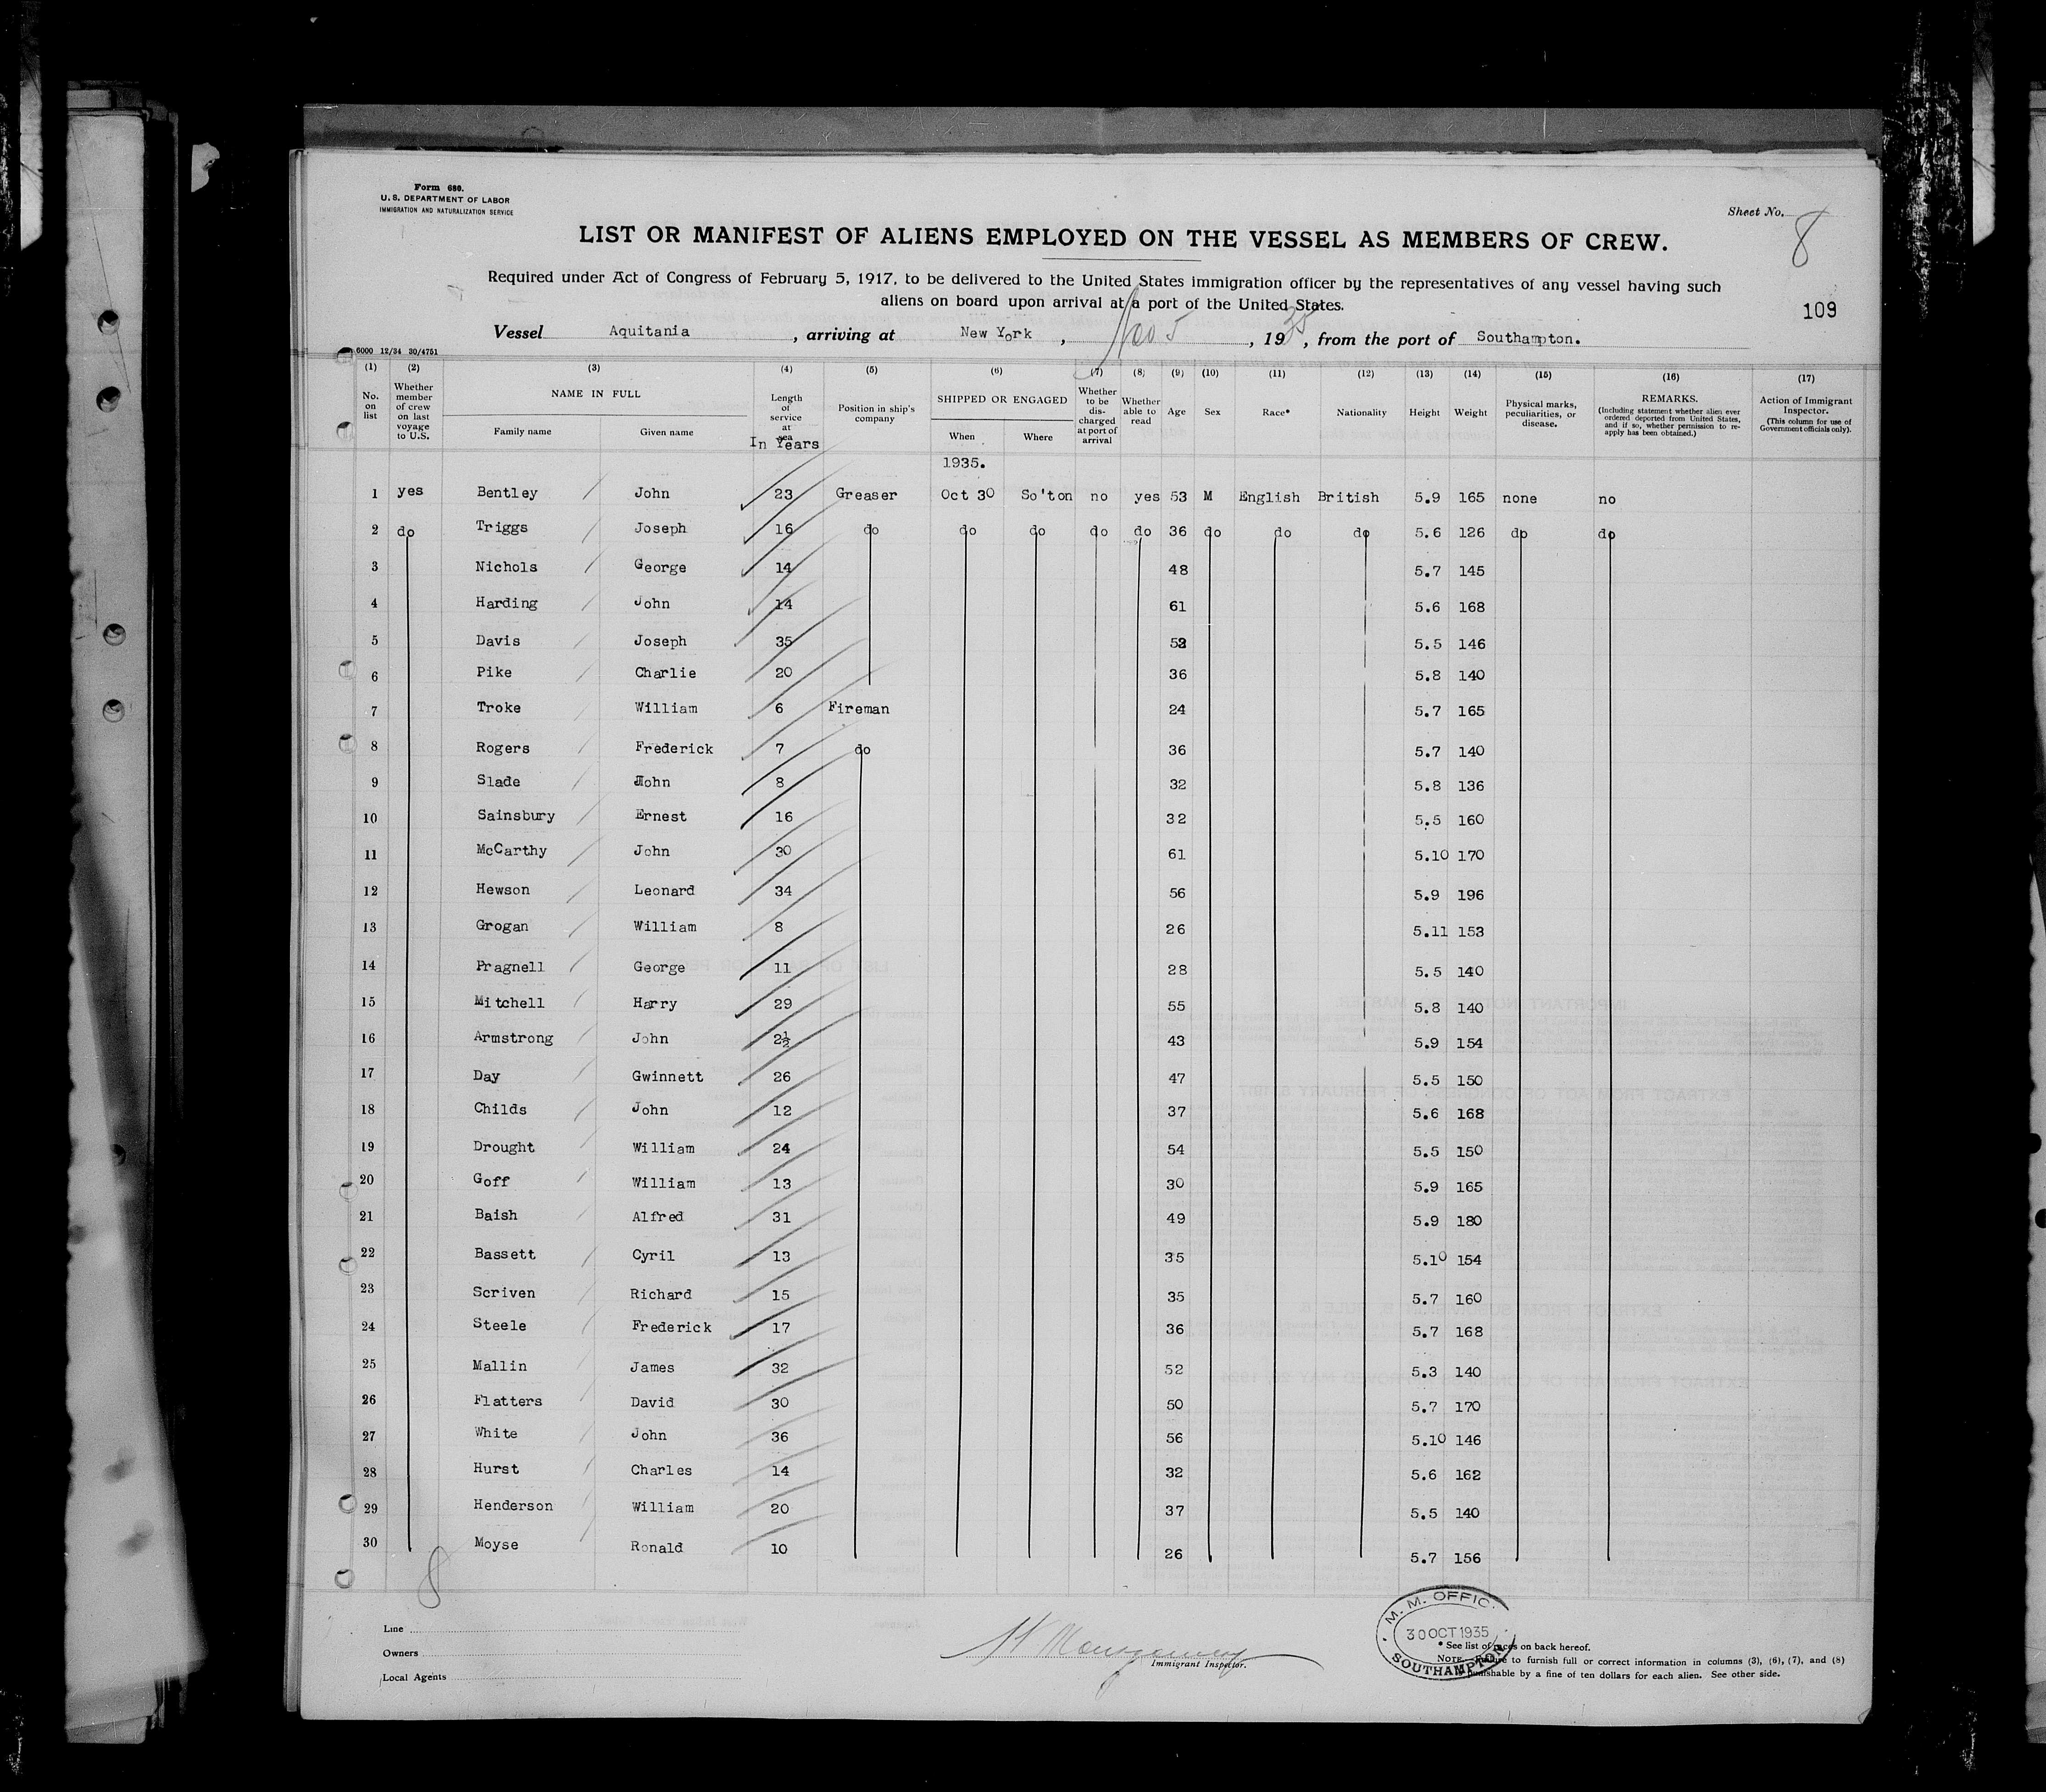 Form 680.
U. S. DEPARTMENT OF LABOR
IMMIGRATION AND NATURALIZATION SERVICE
Sheet No. 8
LIST OR MANIFEST OF ALIENS EMPLOYED ON THE VESSEL AS MEMBERS OF CREW.
Required under Act of Congress of February 5, 1917, to be delivered to the United States immigration officer by the representatives of any vessel having such
aliens on board upon arrival at a port of the United States.
109
Vessel Aquitania, arriving at New York, Nov 5, 1935, from the port of Southampton.
6000 12/34 30/4751
(1) (2) (3) (4) (5) (6) (7) (8) (9) (10) (11) (12) (13) (14) (15) (16) (17)
No. on list Whether member of crew on last voyage to U.S. NAME IN FULL Family name Given name Length of service at sea In Years Position in ship's company SHIPPED OR ENGAGED When Where Whether to be discharged at port of arrival Whether able to read Age Sex Race* Nationality Height Weight Physical marks, peculiarities, or disease. REMARKS. (Including statement whether alien ever ordered deported from United States, and if so, whether permission to re-apply has been obtained.) Action of Immigrant Inspector. (This column for use of Government officials only).
1935.
1 yes Bentley John 23 Greaser Oct 30 So'ton no yes 53 M English British 5.9 165 none no
2 do Triggs Joseph 16 do do do do do 36 do do do 5.6 126 do do
3 Nichols George 14 48 5.7 145
4 Harding John 14 61 5.6 168
5 Davis Joseph 35 5.5 146
6 Pike Charlie 20 36 5.8 140
7 Troke William 6 Fireman 24 5.7 165
8 Rogers Frederick 7 do 36 5.7 140
9 Slade John 8 32 5.8 136
10 Sainsbury Ernest 16 32 5.5 160
11 McCarthy John 30 61 5.10 170
12 Hewson Leonard 34 56 5.9 196
13 Grogan William 8 26 5.11 153
14 Pragnell George 11 28 5.5 140
15 Mitchell Harry 29 55 5.8 140
16 Armstrong John 2½ 43 5.9 154
17 Day Gwinnett 26 47 5.5 150
18 Childs John 12 37 5.6 168
19 Drought William 24 54 5.5 150
20 Goff William 13 30 5.9 165
21 Baish Alfred 31 49 5.9 180
22 Bassett Cyril 13 35 5.10 154
23 Scriven Richard 15 35 5.7 160
24 Steele Frederick 17 36 5.7 168
25 Mallin James 32 52 5.3 140
26 Flatters David 30 50 5.7 170
27 White John 36 56 5.10 146
28 Hurst Charles 14 32 5.6 162
29 Henderson William 20 37 5.5 140
30 Moyse Ronald 10 26 5.7 156
8
Line
Owners
Local Agents
H Montgomery
Immigrant Inspector.
M. M. OFFIC.
30 OCT 1935
SOUTHAMPTON
* See list of races on back hereof.
NOTE.—Failure to furnish full or correct information in columns (3), (6), (7), and (8)
punishable by a fine of ten dollars for each alien. See other side.